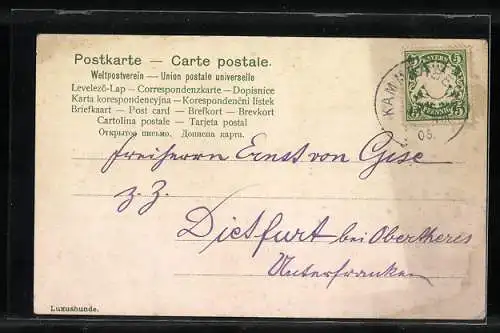 Postkarte — Carte postale.
Weltpostverein — Union postale universelle
Levelező-Lap — Correspondenzkarte — Dopisnice
Karta korespondencyjna — Korespondenční listek
Briefkaart — Post card — Brefkort — Brevkort
Cartolina postale — Tarjeta postal
Открытое письмо. Дописна карта.
BAYERN
5 5
5 5
PFENNIG
KAMM
03.
Freiherrn Ernst von Gise
z. Z.
Dietfurt bei Obertheres
Unterfranken
Luxushunde.